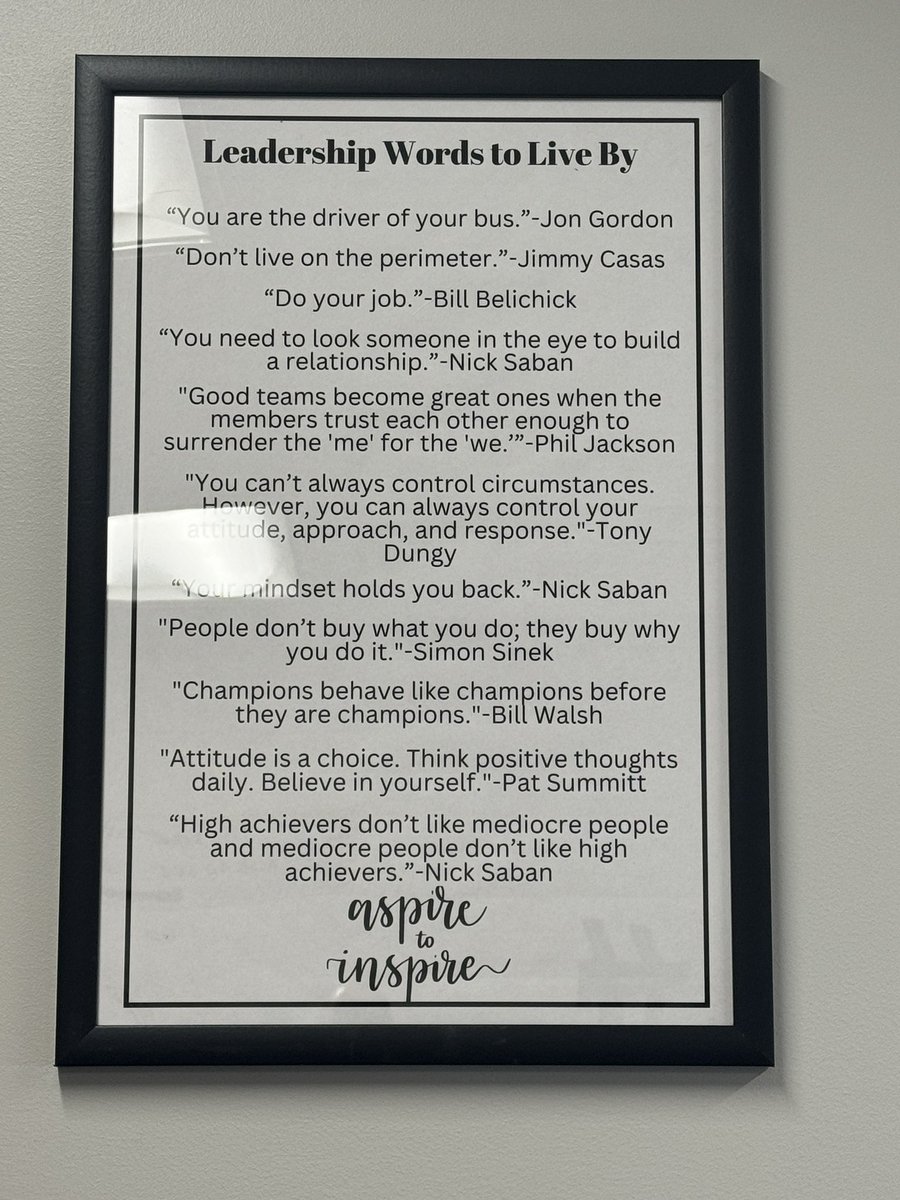 Leadership Words to Live By
“You are the driver of your bus.”-Jon Gordon
“Don’t live on the perimeter.”-Jimmy Casas
“Do your job.”-Bill Belichick
“You need to look someone in the eye to build
a relationship.”-Nick Saban
"Good teams become great ones when the
members trust each other enough to
surrender the 'me' for the 'we.’”-Phil Jackson
"You can’t always control circumstances.
However, you can always control your
attitude, approach, and response."-Tony
Dungy
“Your mindset holds you back.”-Nick Saban
"People don’t buy what you do; they buy why
you do it."-Simon Sinek
"Champions behave like champions before
they are champions."-Bill Walsh
"Attitude is a choice. Think positive thoughts
daily. Believe in yourself."-Pat Summitt
“High achievers don’t like mediocre people
and mediocre people don’t like high
achievers.”-Nick Saban
aspire
to
inspire